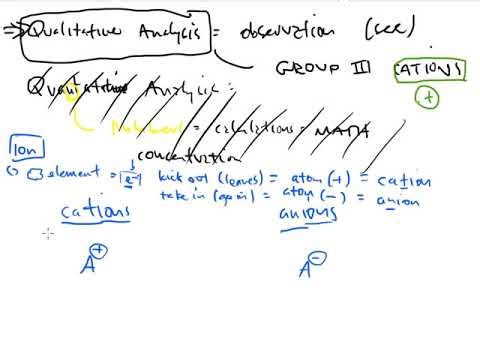 ⇒ Qualitative Analysis = observation (see)
GROUP III CATIONS
+
Quantitative Analysis =
Numbers = calculations = MATH
concentration
Ion
element = e⁻ kick out (leaves) = atom (+) = cation
take in (gain) = atom (-) = anion
cations anions
A⁺ A⁻